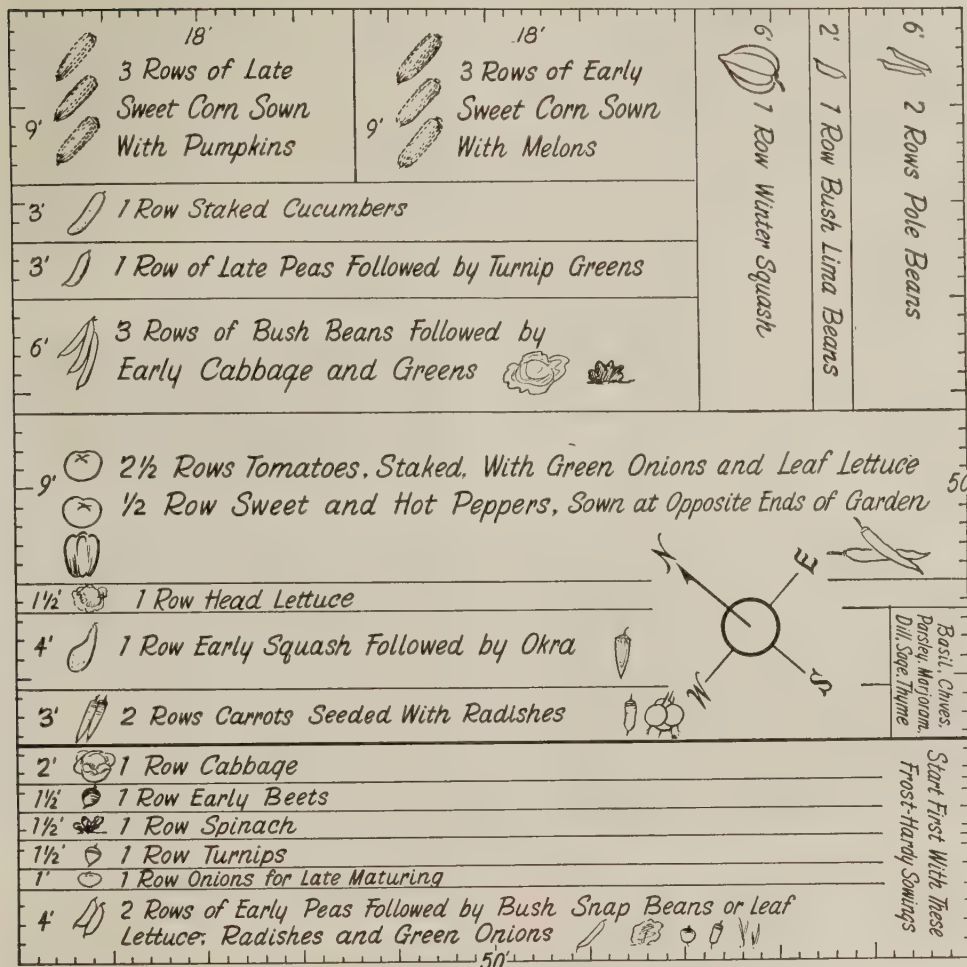 18'
9'
3 Rows of Late
Sweet Corn Sown
With Pumpkins
18'
9'
3 Rows of Early
Sweet Corn Sown
With Melons
6' 1 Row Winter Squash
2' 1 Row Bush Lima Beans
6' 2 Rows Pole Beans
3' 1 Row Staked Cucumbers
3' 1 Row of Late Peas Followed by Turnip Greens
6' 3 Rows of Bush Beans Followed by
Early Cabbage and Greens
9' 2½ Rows Tomatoes, Staked, With Green Onions and Leaf Lettuce
50'
½ Row Sweet and Hot Peppers, Sown at Opposite Ends of Garden
N
E
S
W
1½' 1 Row Head Lettuce
4' 1 Row Early Squash Followed by Okra
Basil, Chives,
Parsley, Marjoram,
Dill, Sage, Thyme
3' 2 Rows Carrots Seeded With Radishes
2' 1 Row Cabbage
1½' 1 Row Early Beets
1½' 1 Row Spinach
1½' 1 Row Turnips
1' 1 Row Onions for Late Maturing
4' 2 Rows of Early Peas Followed by Bush Snap Beans or Leaf
Lettuce, Radishes and Green Onions
Start First With These
Frost-Hardy Sowings
50'